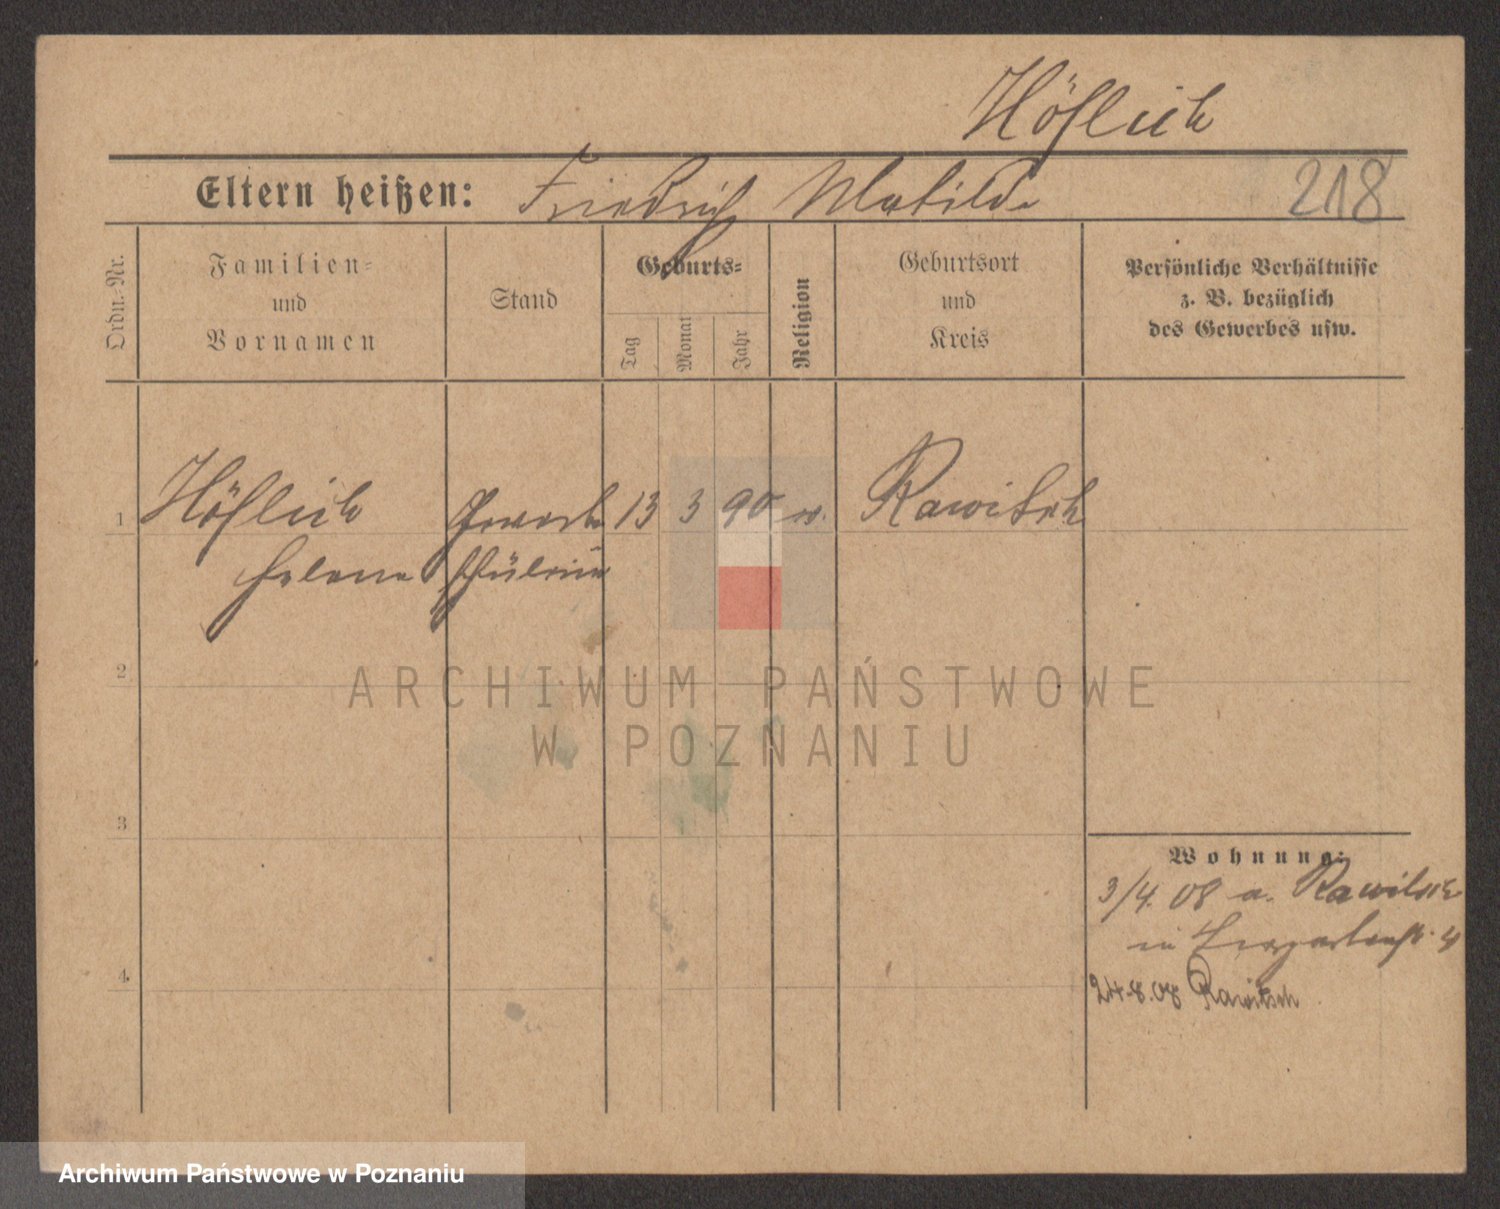 Höflich
Eltern heißen: Friedrich Matilde 218
Ordn.-Nr.
Familien-
und
Vornamen
Stand
Geburts-
Tag
Monat
Jahr
Religion
Geburtsort
und
Kreis
Persönliche Verhältnisse
z. B. bezüglich
des Gewerbes usw.
1 Höflich 13 3 90 Rawitsch
Helene schülerin
2
ARCHIWUM PAŃSTWOWE
W POZNANIU
3
Wohnung:
3/4. 08 a. Rawitsch
in
4
24.8.08 Rawitsch
Archiwum Państwowe w Poznaniu